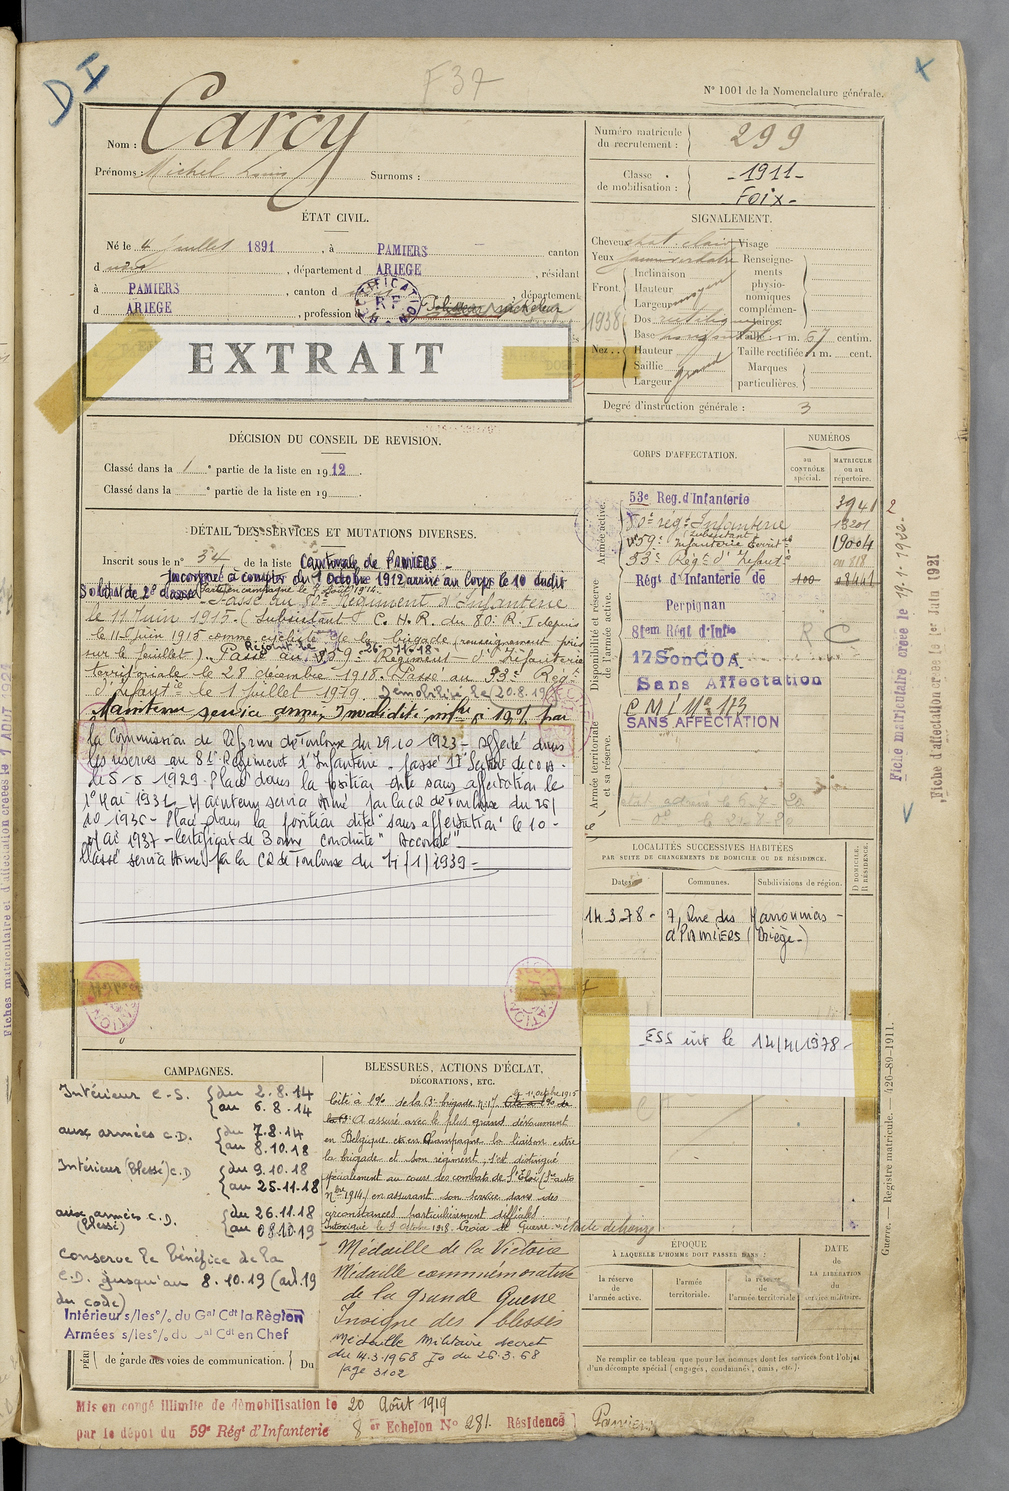 D I
F 37
N° 1001 de la Nomenclature générale.
Nom : Carcy
Prénoms : Michel Louis Surnoms :
ÉTAT CIVIL.
Né le 4 Juillet 1891, à PAMIERS canton
d dudit, département d ARIEGE, résidant
à PAMIERS, canton d, département
d ARIEGE, profession
EXTRAIT
DÉCISION DU CONSEIL DE REVISION.
Classé dans la 1 e partie de la liste en 1912.
Classé dans la e partie de la liste en 19
DÉTAIL DES SERVICES ET MUTATIONS DIVERSES.
Inscrit sous le n° 34 de la liste Cantonale de PAMIERS -
Incorporé à compter du 1 Octobre 1912 arrivé au corps le 10 dudit
Soldat de 2e classe Parti en campagne le 7 Août 1914.
Passé au 80e Régiment d'Infanterie
le 11 Juin 1915. (Subsistant C. H. R. du 80e R. I depuis
le 11 Juin 1915 comme cycliste de la brigade (renseignement pris
sur le feuillet). Passé au 59e Régiment d'Infanterie
territoriale le 28 décembre 1918. Passé au 53e Régt
d'Infantie le 1 Juillet 1919. Démobilisé le 20.8.19
Maintenu service armé, Invalidité infre à 10% par
la Commission de Réforme de Toulouse du 29.10.1923 - Affecté dans
les réserves au 81e Régiment d'Infanterie - passé 17e Section de COA -
le 5-5 1929. Placé dans la position dite sans affectation le
1er Mai 1932. Maintenu service Armé par la CR de Toulouse du 26/
10 1936 - Placé dans la position dite "sans affectation" le 10 -
Mai 1937 - Certificat de Bonne conduite "Accordé"
Classé service Armé par la CR de Toulouse du 4/1/1939 -
CAMPAGNES.
Intérieur C.S. du 2.8.14
au 6.8.14
aux armées C.D. du 7.8.14
au 8.10.18
Intérieur (Blessé) C.D du 9.10.18
au 25.11.18
aux armées C.D. du 26.11.18
(Blessé) au 08.10.19
Conserve le bénéfice de la
C.D. jusqu'au 8.10.19 (art.19
du code)
Intérieur s/les % du Gal Cdt la Région
Armées s/les % du Gal Cdt en Chef
de garde des voies de communication. Du
BLESSURES, ACTIONS D'ÉCLAT,
DÉCORATIONS, ETC.
Cité à l'% de la B. brigade n: 17 11 octobre 1915
A assuré avec le plus grand dévouement
en Belgique et en Champagne la liaison entre
la brigade et son régiment, s'est distingué
spécialement au cours des combats de St Eloi
nbre 1914) en assurant son service dans des
circonstances particulièrement difficiles.
Intoxiqué le 9 Octobre 1918. Croix de Guerre étoile de bronze
Médaille de la Victoire
Médaille commémorative
de la grande Guerre
Insigne des blessés
Médaille Militaire décret
du 14.3.1968 Jo du 26.3.68
page 3102
Mis en congé illimité de démobilisation le 20 Août 1919
par le dépôt du 59e Régt d'Infanterie 8 er Echelon N° 281. Résidence Pamiers
Numéro matricule du recrutement : 299
Classe de mobilisation : - 1911 -
FOIX -
SIGNALEMENT.
Cheveux chat. clair Visage
Yeux Renseignements physionomiques complémentaires:
Front. Inclinaison
Hauteur moyen
Largeur
Nez. Dos rectiligne
Base
Hauteur
Saillie
Largeur grand
Taille : 1 m. 67 centim.
Taille rectifiée 1 m. cent.
Marques particulières.
1938
Degré d'instruction générale : 3
CORPS D'AFFECTATION.
NUMÉROS
au CONTRÔLE spécial.
MATRICULE ou au répertoire.
Armée active.
53e Reg. d'Infanterie 3941 2
80e régt Infanterie 13201
59e Infanterie territ 19004
53e Régt d'Infantie
Disponibilité et réserve de l'armée active.
Régt d'Infanterie de
Perpignan
81em Régt d'Infie
R C
17 Son COA
Sans Affectation
CMI N° 173
SANS AFFECTATION
Armée territoriale et sa réserve.
LOCALITÉS SUCCESSIVES HABITÉES
PAR SUITE DE CHANGEMENTS DE DOMICILE OU DE RÉSIDENCE.
Dates Communes. Subdivisions de région. D DOMICILE. R RÉSIDENCE.
14-3-78 - 7, Rue des Marronniers -
à PAMIERS (Ariège -)
ESS int le 14/4/1978 -
ÉPOQUE
À LAQUELLE L'HOMME DOIT PASSER DANS :
la réserve de l'armée active.
l'armée territoriale.
la réserve de l'armée territoriale
DATE DE LA LIBÉRATION du service militaire.
Ne remplir ce tableau que pour les hommes dont les services font l'objet
d'un décompte spécial (engagés, condamnés, omis, etc.).
Fiche matriculaire créée le 19-1-1922-
Fiche d'affectation créée le 1er Juin 1921
Guerre. — Registre matricule. — 426-89-1911.